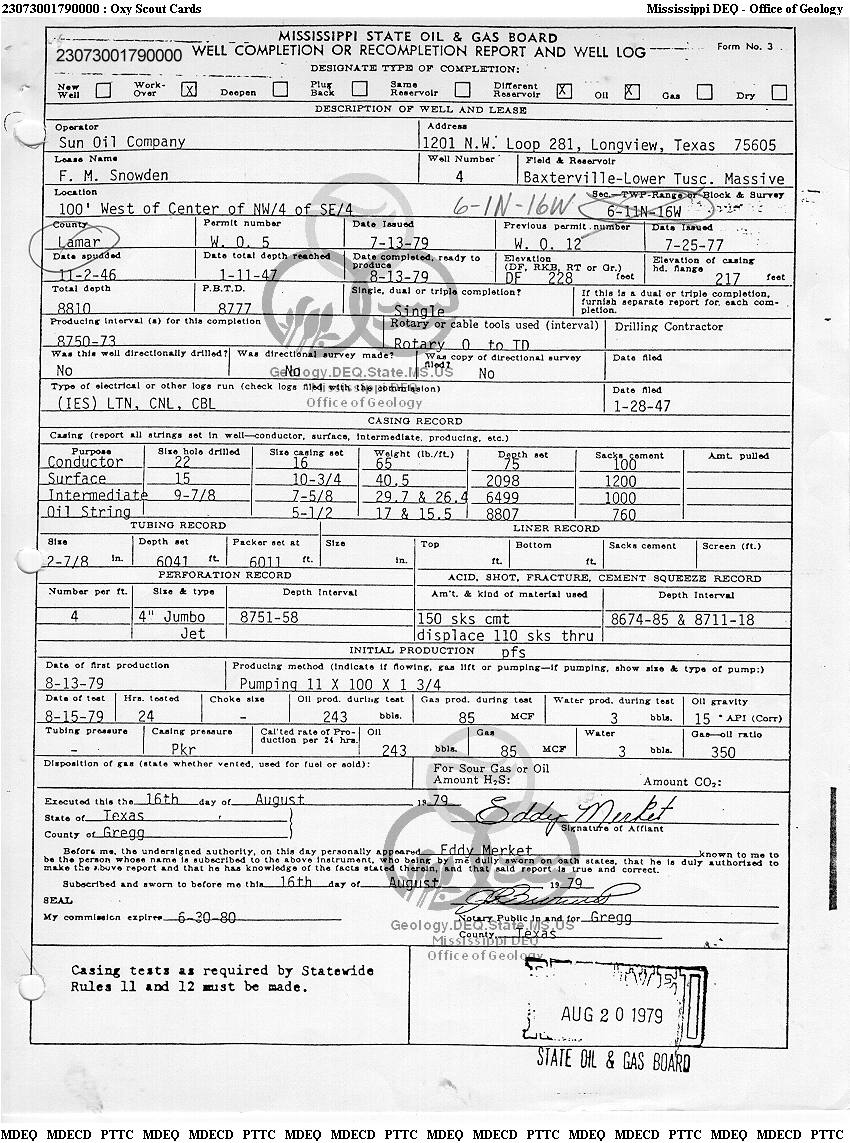 23073001790000 : Oxy Scout Cards Mississippi DEQ - Office of Geology
MISSISSIPPI STATE OIL & GAS BOARD
23073001790000 WELL COMPLETION OR RECOMPLETION REPORT AND WELL LOG Form No. 3
DESIGNATE TYPE OF COMPLETION:
New Well Work-Over X Deepen Plug Back Same Reservoir Different Reservoir X Oil X Gas Dry
DESCRIPTION OF WELL AND LEASE
Operator Address
Sun Oil Company 1201 N.W. Loop 281, Longview, Texas 75605
Lease Name Well Number Field & Reservoir
F. M. Snowden 4 Baxterville-Lower Tusc. Massive
Location Sec.-TWP-Range or Block & Survey
100' West of Center of NW/4 of SE/4 6-1N-16W 6-11N-16W
County Permit number Date Issued Previous permit number Date Issued
Lamar W. O. 5 7-13-79 W. O. 12 7-25-77
Date spudded Date total depth reached Date completed, ready to produce Elevation (DF, RKB, RT or Gr.) Elevation of casing hd. flange
11-2-46 1-11-47 8-13-79 DF 228 feet 217 feet
Total depth P.B.T.D. Single, dual or triple completion? If this is a dual or triple completion, furnish separate report for each completion.
8810 8777 Single
Producing interval (s) for this completion Rotary or cable tools used (interval) Drilling Contractor
8750-73 Rotary 0 to TD
Was this well directionally drilled? Was directional survey made? Was copy of directional survey filed? Date filed
No No No
Geology.DEQ.State.MS.US
Type of electrical or other logs run (check logs filed with the commission) Date filed
Mississippi DEQ
(IES) LTN, CNL, CBL 1-28-47
Office of Geology
CASING RECORD
Casing (report all strings set in well—conductor, surface, intermediate, producing, etc.)
Purpose Size hole drilled Size casing set Weight (lb./ft.) Depth set Sacks cement Amt. pulled
Conductor 22 16 65 75 100
Surface 15 10-3/4 40.5 2098 1200
Intermediate 9-7/8 7-5/8 29.7 & 26.4 6499 1000
Oil String 5-1/2 17 & 15.5 8807 760
TUBING RECORD LINER RECORD
Size Depth set Packer set at Size Top Bottom Sacks cement Screen (ft.)
2-7/8 in. 6041 ft. 6011 ft. in. ft. ft.
PERFORATION RECORD ACID, SHOT, FRACTURE, CEMENT SQUEEZE RECORD
Number per ft. Size & type Depth Interval Am't. & kind of material used Depth Interval
4 4" Jumbo 8751-58 150 sks cmt 8674-85 & 8711-18
Jet displace 110 sks thru
INITIAL PRODUCTION pfs
Date of first production Producing method (indicate if flowing, gas lift or pumping—if pumping, show size & type of pump:)
8-13-79 Pumping 11 X 100 X 1 3/4
Date of test Hrs. tested Choke size Oil prod. during test Gas prod. during test Water prod. during test Oil gravity
8-15-79 24 - 243 bbls. 85 MCF 3 bbls. 15 ° API (Corr)
Tubing pressure Casing pressure Cal'ted rate of Production per 24 hrs. Oil Gas Water Gas—oil ratio
- Pkr 243 bbls. 85 MCF 3 bbls. 350
Disposition of gas (state whether vented, used for fuel or sold): For Sour Gas or Oil
Amount H2S: Amount CO2:
Executed this the 16th day of August 1979 Eddy Merket
State of Texas Signature of Affiant
County of Gregg
Before me, the undersigned authority, on this day personally appeared Eddy Merket known to me to
be the person whose name is subscribed to the above instrument, who being by me dully sworn on oath states, that he is duly authorized to
make the above report and that he has knowledge of the facts stated therein, and that said report is true and correct.
Subscribed and sworn to before me this 16th day of August 1979
SEAL
My commission expires 6-30-80 Notary Public in and for Gregg
Geology.DEQ.State.MS.US
County, Texas
Mississippi DEQ
Office of Geology
Casing tests as required by Statewide
Rules 11 and 12 must be made.
AUG 20 1979
STATE OIL & GAS BOARD
MDEQ MDECD PTTC MDEQ MDECD PTTC MDEQ MDECD PTTC MDEQ MDECD PTTC MDEQ MDECD PTTC MDEQ MDECD PTTC